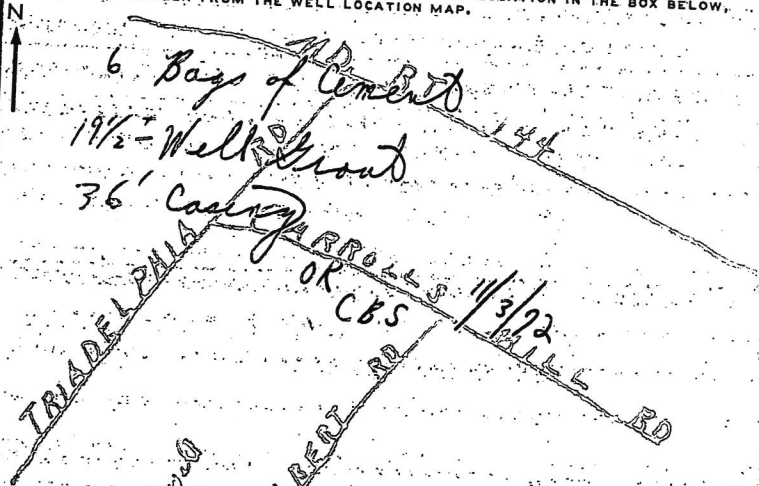 FROM THE WELL LOCATION MAP.
IN THE BOX BELOW,
N
MD. RT 144
6 Bags of Cement
19½± Well Grout
36' Casing
TRIADELPHIA RD
CARROLLS MILL RD
OK
CBS 11/3/72
BERT RD